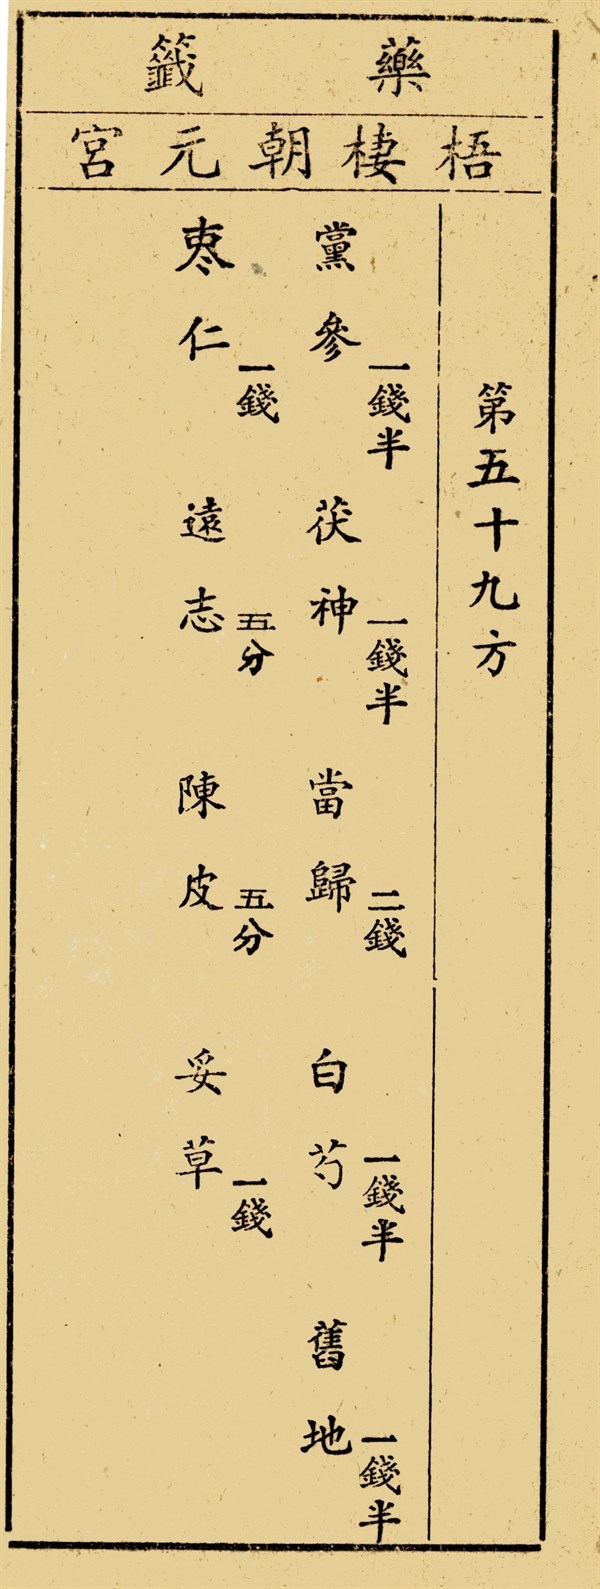 藥籤
梧棲朝元宮
第五十九方
黨參一錢半 茯神一錢半 當歸二錢 白芍一錢半 舊地一錢半
枣仁一錢 遠志五分 陳皮五分 妥草一錢